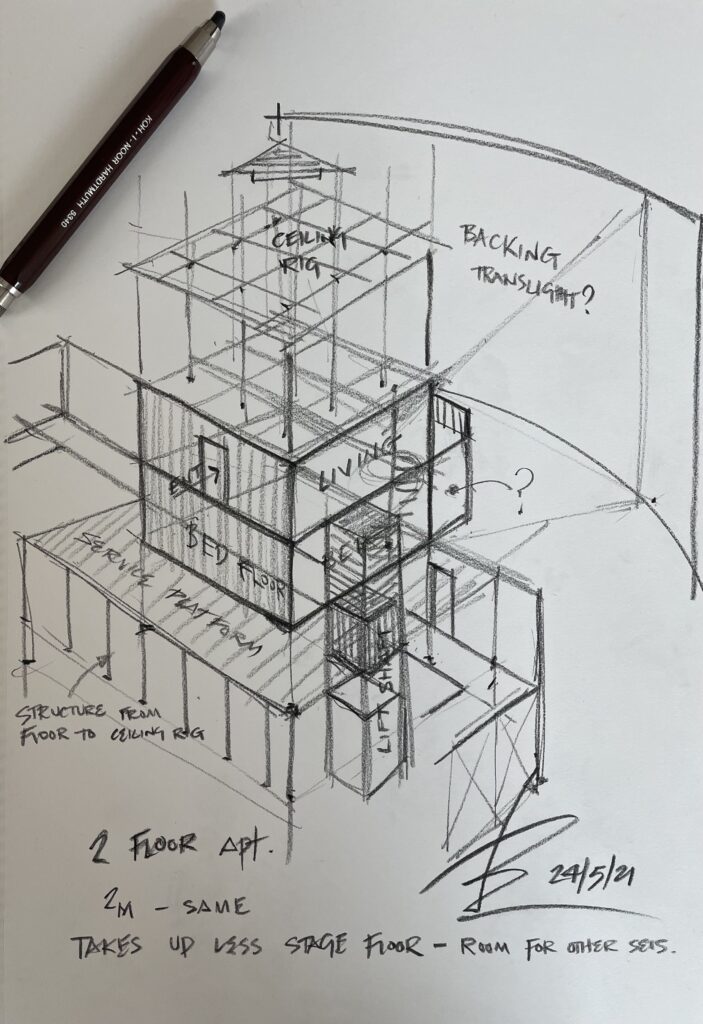 KOH-I-NOOR HARDTMUTH 5340
CEILING
RIG
BACKING
TRANSLIGHT?
LIVING
?
BED FLOOR
SERVICE PLATFORM
LIFT SHAFT
STRUCTURE FROM
FLOOR TO CEILING RIG
2 FLOOR APT.
24/5/21
2M - SAME
TAKES UP LESS STAGE FLOOR - ROOM FOR OTHER SETS.